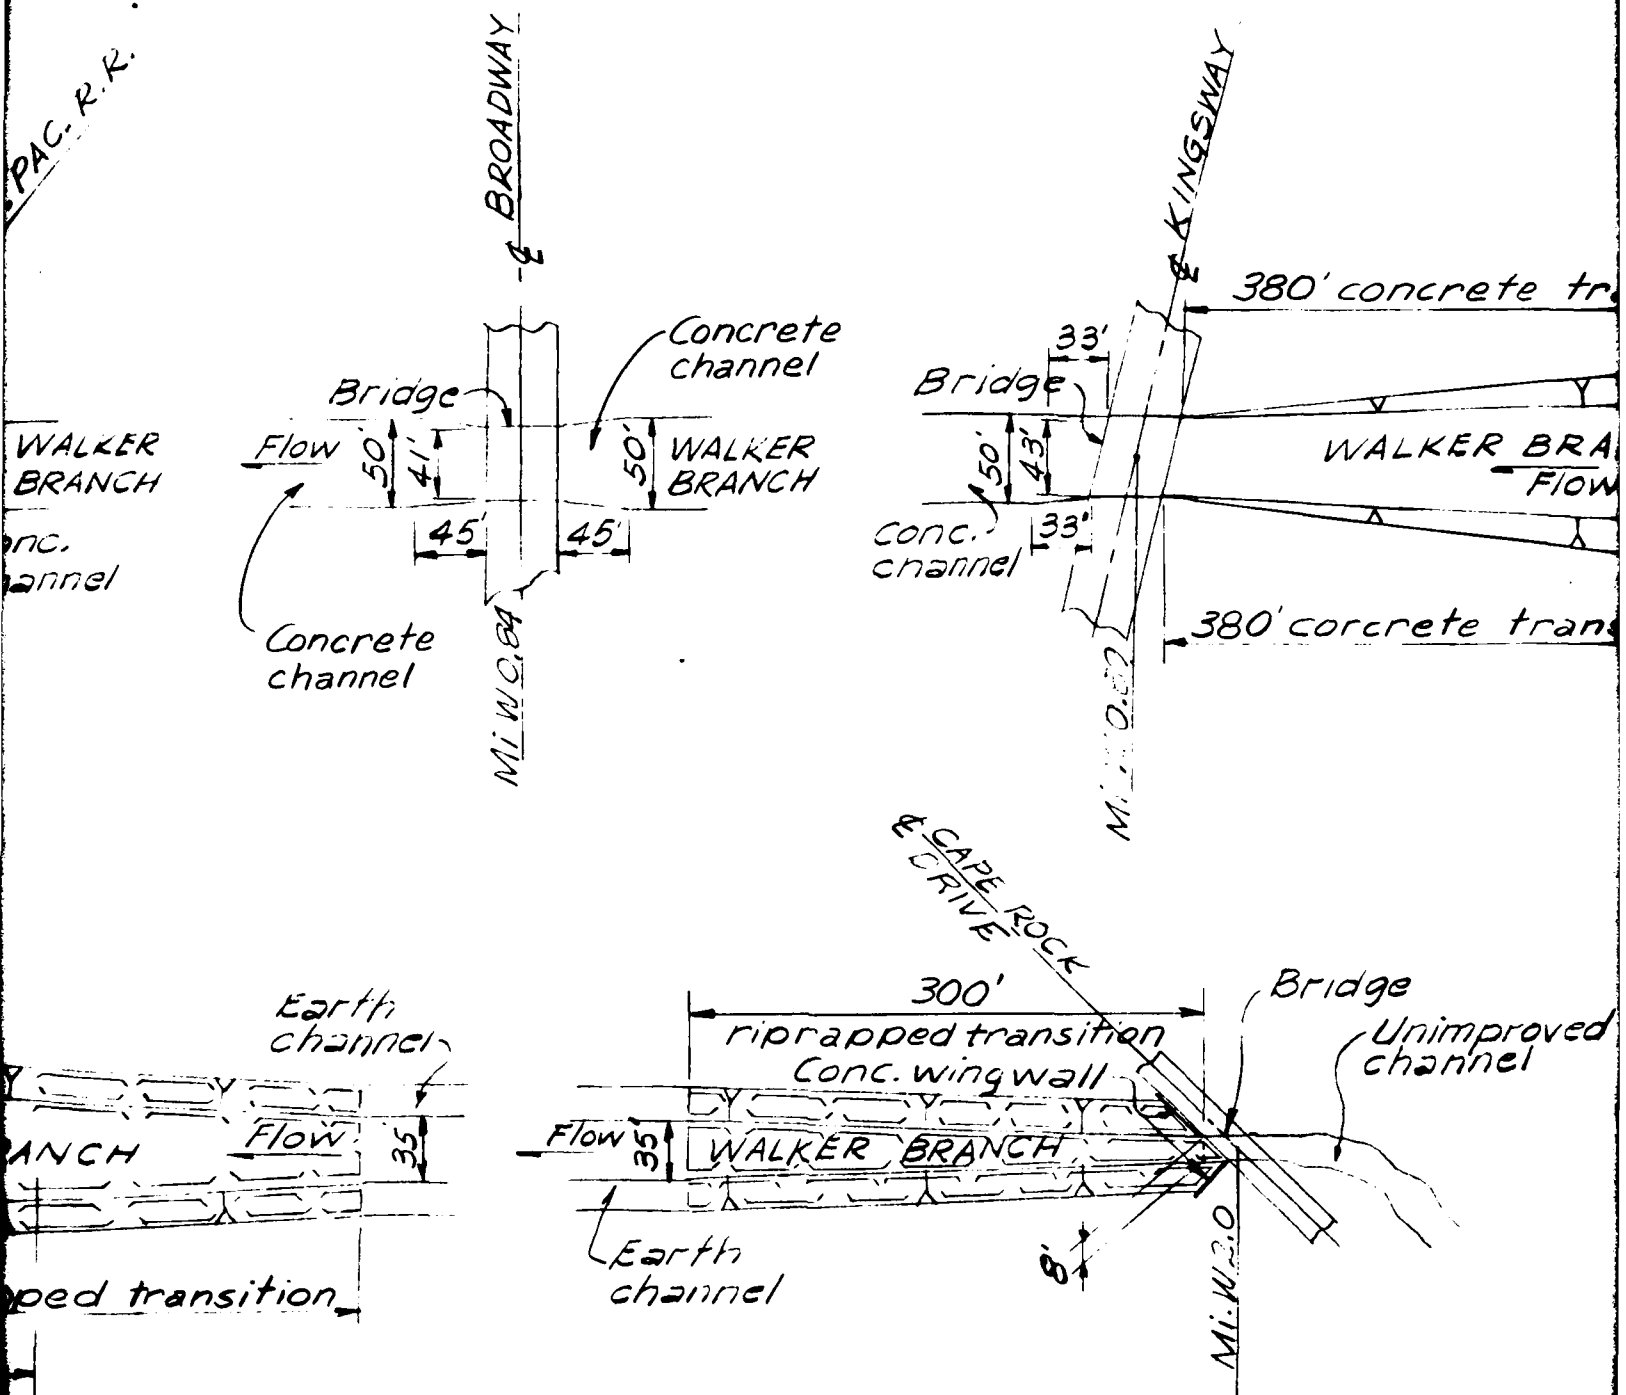 PAC. R.R.
℄ BROADWAY
℄ KINGSWAY
380' concrete
33'
Concrete
channel
Bridge
Bridge
WALKER
BRANCH
Flow
50'
41'
50'
WALKER
BRANCH
50'
43'
WALKER
Flow
45'
45'
Conc.
channel
33'
Concrete
channel
380' corcrete
Mi W 0.84
Mi.
℄ CAPE ROCK
DRIVE
300'
riprapped transition
Conc. wingwall
Bridge
Unimproved
channel
Earth
channel
Flow
35'
Flow
35'
WALKER BRANCH
Earth
channel
8'
Mi. W 2.0
transition